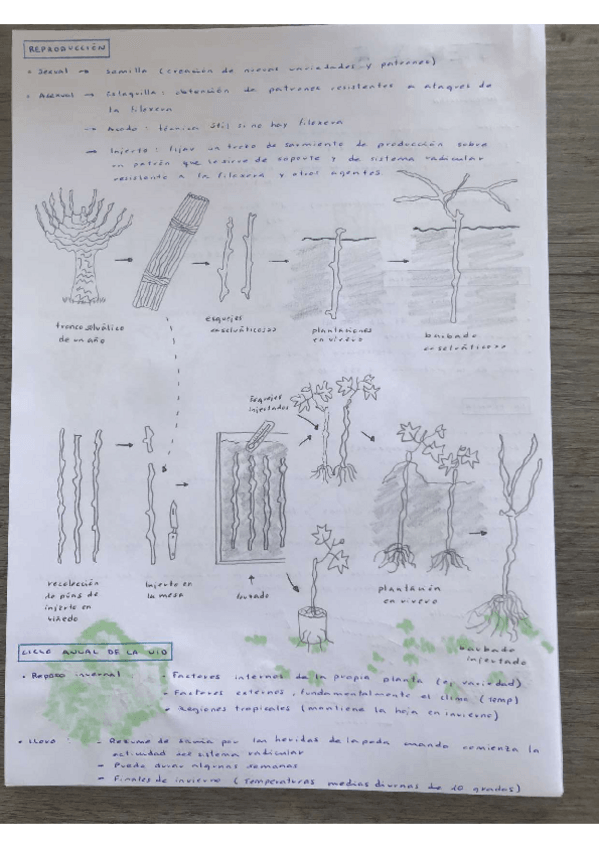 REPRODUCCIÓN
• Sexual → Semilla (creación de nuevas variedades y patrones)
• Asexual → Estaquilla: obtención de patrones resistentes a ataques de
la filoxera
→ Acodo: técnica útil si no hay filoxera
→ Injerto: fijar un trozo de sarmiento de producción sobre
un patrón que le sirve de soporte y de sistema radicular
resistente a la filoxera y otros agentes.
tronco selvático
de un año
esquejes
plantaciones
en vivero
barbado
Esquejes
injertados
recolección
de púas de
injerto en
viñedo
Injerto en
la mesa
plantación
en vivero
barbado
injertado
CICLO ANUAL DE LA VID
• Reposo invernal
- Factores internos de la propia planta (ej variedad)
- Factores externos, fundamentalmente el clima (temp)
• Regiones tropicales (mantiene la hoja en invierno)
• Lloro
- Rezume de savia por las heridas de la poda cuando comienza la
actividad del sistema radicular
- Puede durar algunas semanas
- Finales de invierno (temperaturas medias diurnas de 10 grados)